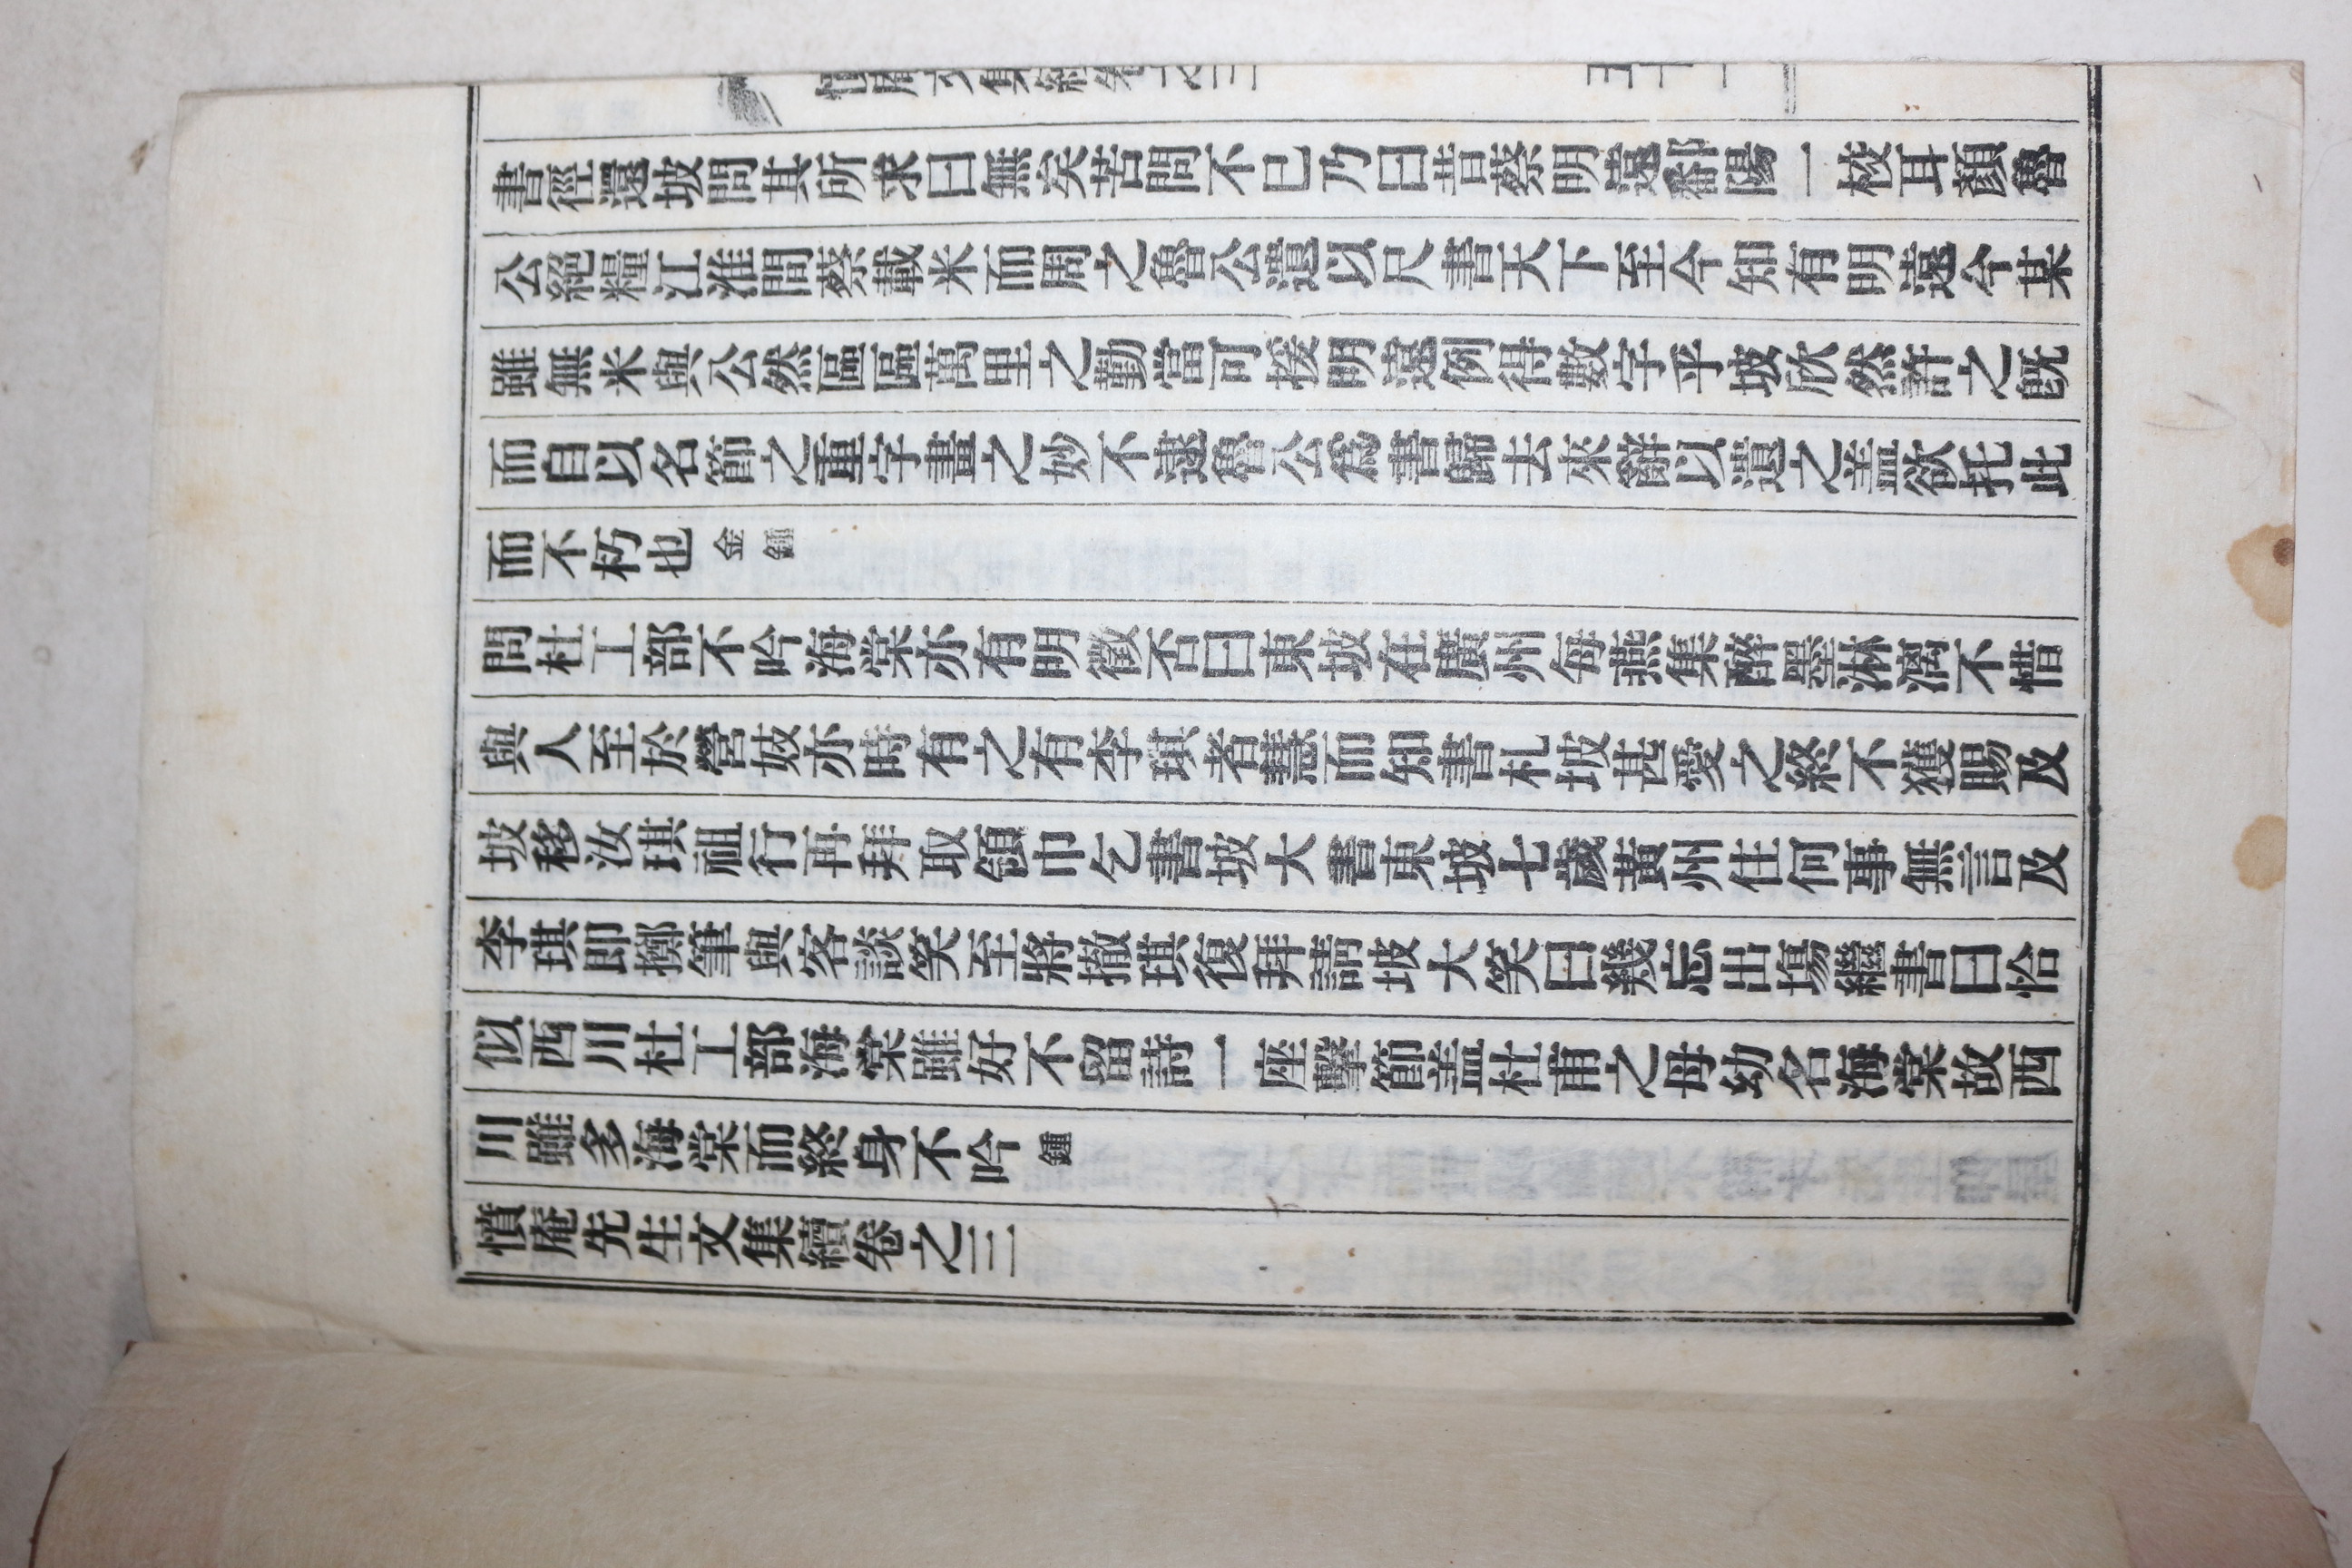 書徑還坡問其所求曰無矣苦問不已乃曰昔蔡明遠鄱陽一校耳顏魯
公絕糧江淮間蔡載米而周之魯公遺以尺書天下至今知有明遠今某
雖無米與公然區區萬里之勤當可援明遠例得數字乎坡欣然許之旣
而自以名節之重字畫之妙不遠魯公爲書歸去來辭以遺之盖欲托此
而不朽也 金鍾
問杜工部不吟海棠亦有明徵否曰東坡在廣州每燕集醉墨淋漓不惜
與人至於營妓亦時有之有李琪者慧而知書札坡甚愛之終不獲賜及
坡移汝琪祖行再拜取領巾乞書坡大書東坡七歲黃州住何事無言及
李琪卽擲筆與客談笑至將撤琪復拜請坡大笑曰幾忘出場繼書曰恰
似西川杜工部海棠雖好不留詩一座擊節盖杜甫之母幼名海棠故西
川雖多海棠而終身不吟 鍾
憤庵先生文集續卷之三